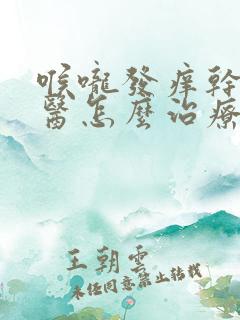 喉嚨發痒幹
醫怎麼治療
王朝雲
未经同意禁止转载